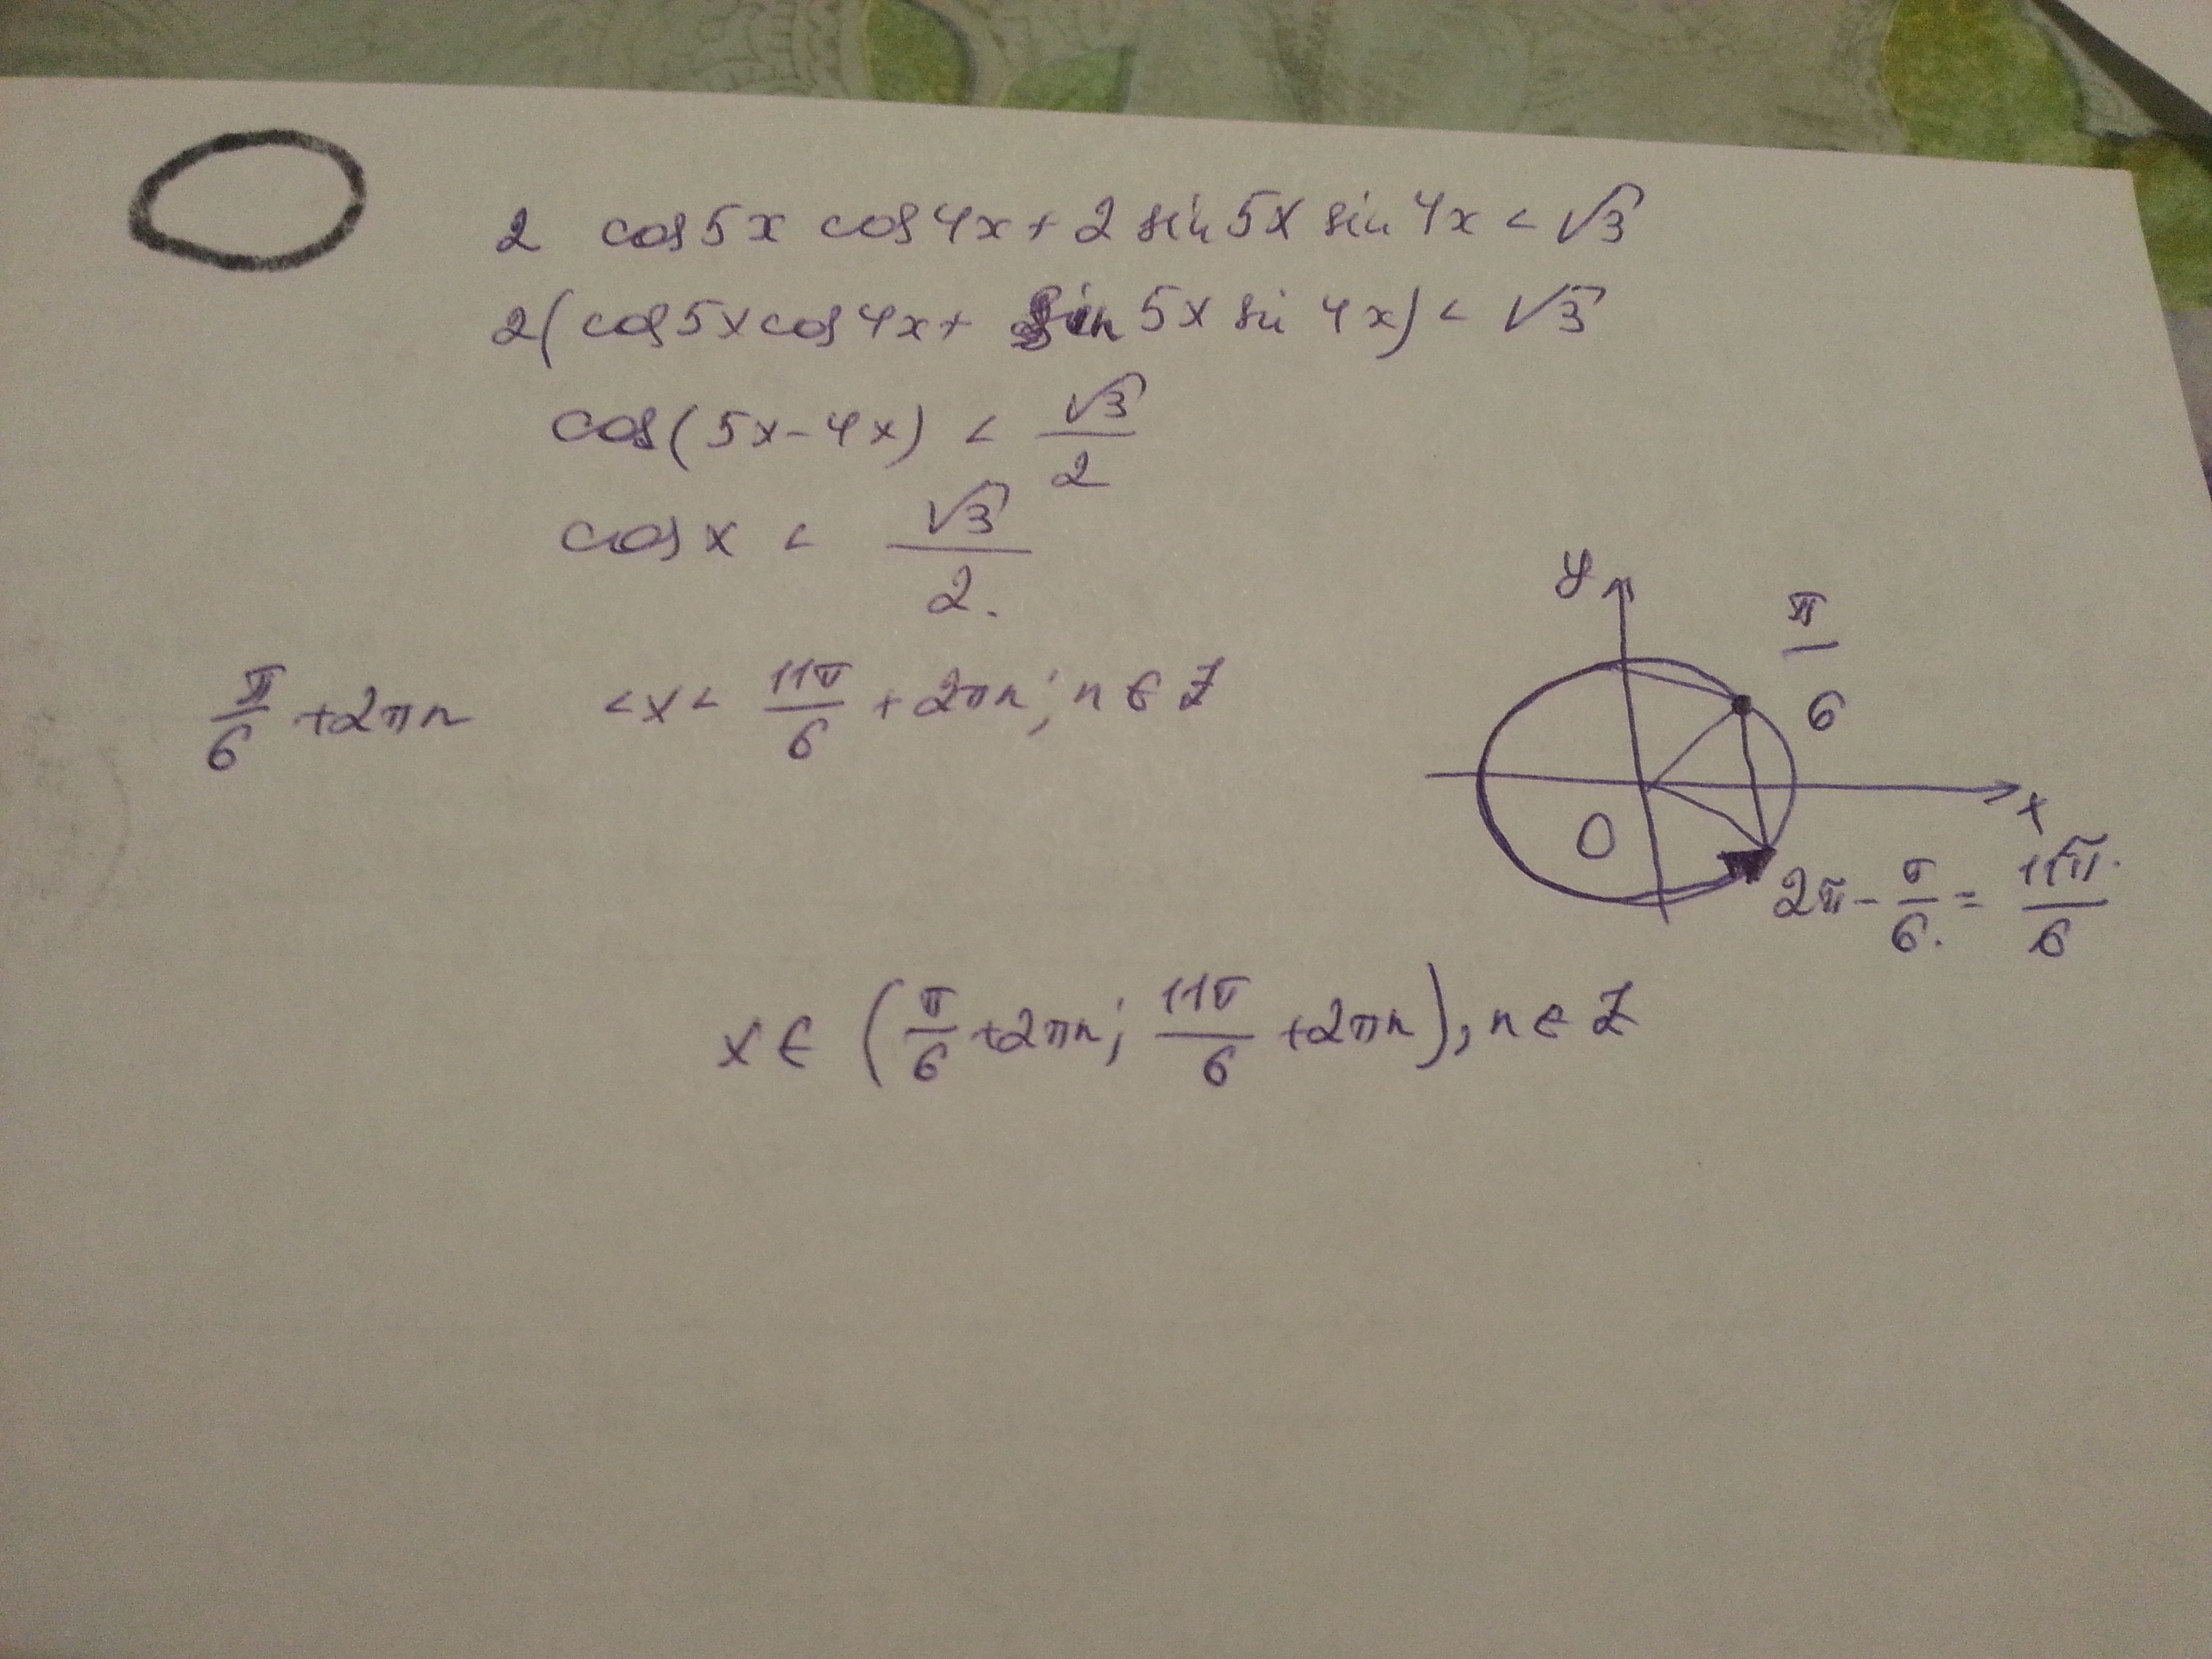 2 cos5x cos4x + 2 sin5x sin4x < √3
2(cos5xcos4x + sin 5x si 4x) < √3
cos(5x-4x) < √3/2
cos x < √3/2.
π/6 + 2πn < x < 11π/6 + 2πn; n ∈ Z
y
π/6
x
0
2π - π/6. = 11π/6
x ∈ (π/6 + 2πn; 11π/6 + 2πn), n ∈ Z